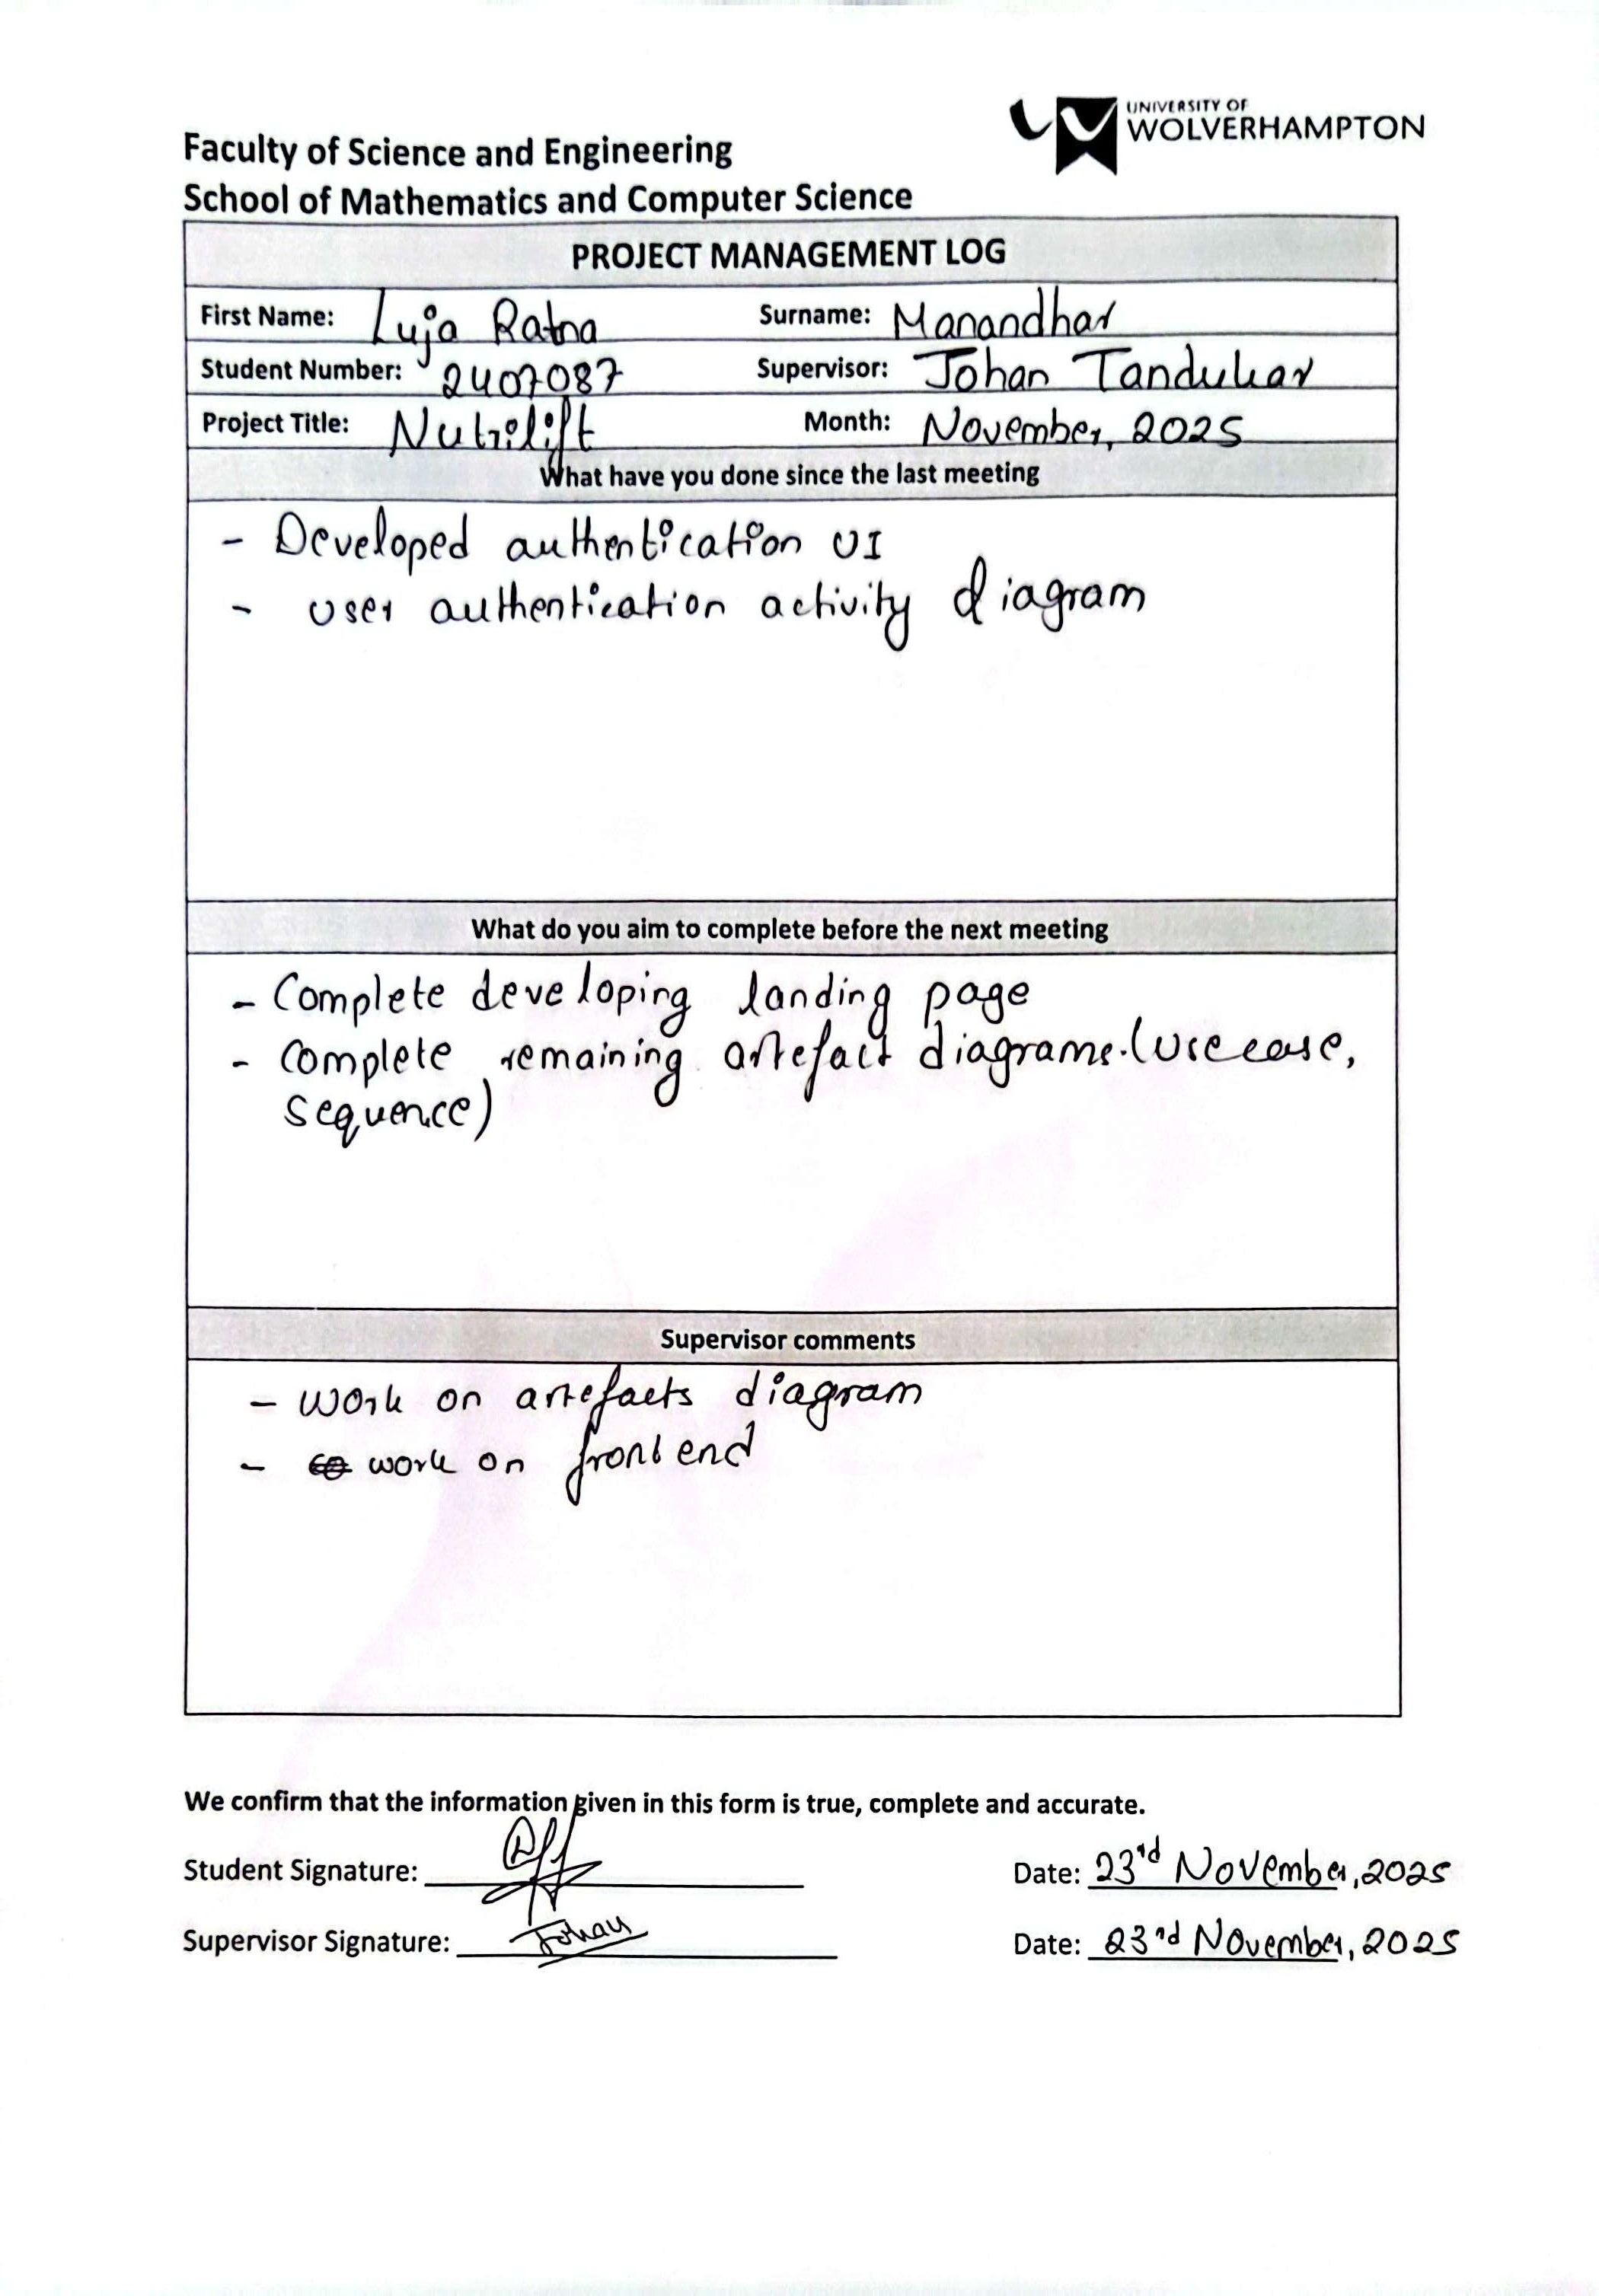 UNIVERSITY OF
WOLVERHAMPTON
Faculty of Science and Engineering
School of Mathematics and Computer Science
PROJECT MANAGEMENT LOG
First Name: Luja Ratna Surname: Manandhar
Student Number: 2407087 Supervisor: Johan Tandukar
Project Title: Nutrilift Month: November, 2025
What have you done since the last meeting
- Developed authentication UI
- user authentication activity diagram
What do you aim to complete before the next meeting
- Complete developing landing page
- complete remaining artefact diagrams.(use case,
sequence)
Supervisor comments
- work on artefacts diagram
- work on frontend
We confirm that the information given in this form is true, complete and accurate.
Student Signature: Date: 23rd November, 2025
Supervisor Signature: Johan Date: 23rd November, 2025